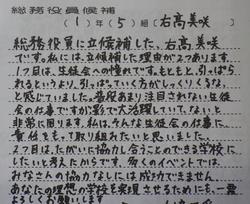 総務役員候補
(1)年(5)組(右高美咲
総務役員に立候補した、右高美咲
です。私には、立候補した理由が2つあります。
1つ目は、生徒会への憧れです。もともと、引っぱら
れるというより、引っぱっていく方がしっくりくるな、
と感じていました。普段あまり注目されない生徒
会の仕事ですが影で大活躍していて、ないと
非常に困ります。私は、そんな生徒会の仕事に
責任をもって取り組みたいと思いました。
2つ目は、たがいに協力し合うことのできる学校に
したいと考えたからです。多くのイベントでは、
みなさんの協力なしには成功できません。
あなたの理想の学校を実現させるためにも、一票
よろしくお願いします